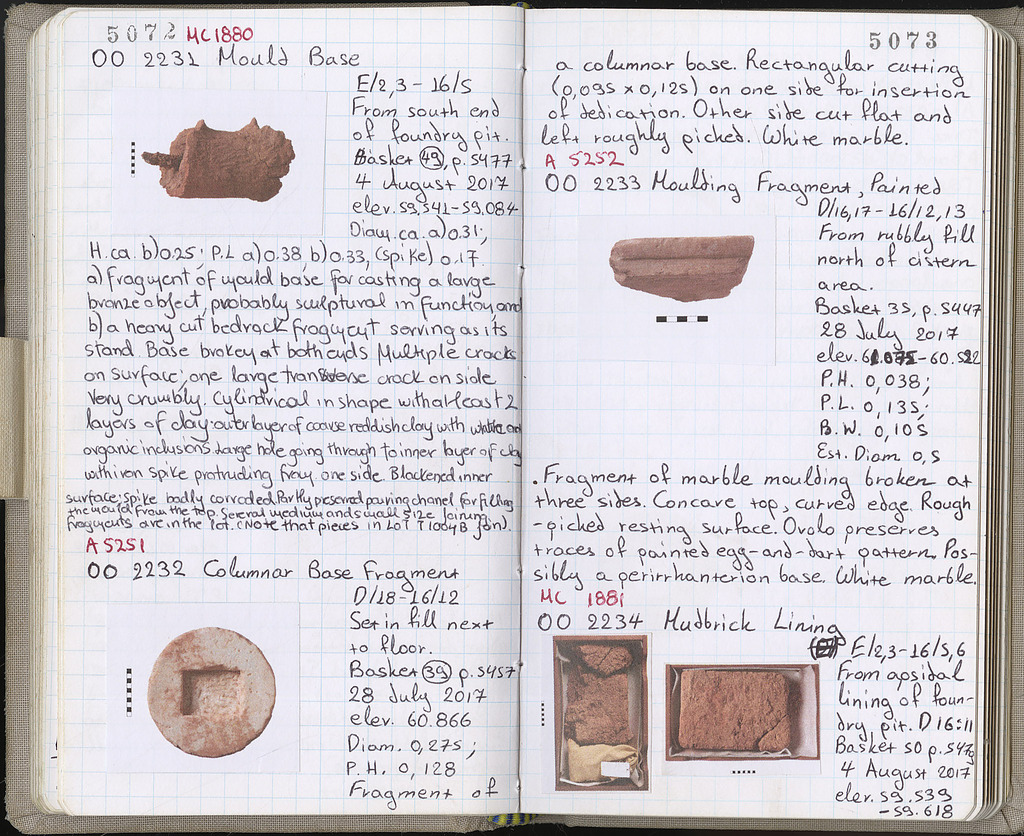 5072 MC1880
OO 2231 Mould Base
E/2,3-16/5
From south end
of foundry pit.
Basket 49, p. 5477
4 August 2017
elev. 59,541-59.084
Diam. ca. a) 0.31;
H. ca. b) 0.25; P.L a) 0.38, b) 0.33, (spike) 0.17.
a) fragment of mould base for casting a large
bronze object, probably sculptural in function, and
b) a heavy cut bedrock fragment serving as its
stand. Base broken at both ends Multiple cracks
on surface; one large transverse crack on side
Very crumbly. Cylindrical in shape with at least 2
layers of clay: outer layer of coarse reddish clay with white and
organic inclusions. Large hole going through to inner layer of clay
with iron spike protruding from one side Blackened inner
surface; spike badly corroded. Partly preserved pouring chanel for filling
the mould from the top. Several medium and small size joining
fragments are in the lot. (Note that pieces in LOT T 1004B join).
A 5251
OO 2232 Columnar Base Fragment
D/18-16/12
Set in fill next
to floor.
Basket 39 p. 5457
28 July 2017
elev. 60.866
Diam. 0,275;
P.H. 0,128
Fragment of
5073
a columnar base. Rectangular cutting
(0,095 x 0,125) on one side for insertion
of dedication. Other side cut flat and
left roughly picked. White marble.
A 5252
OO 2233 Moulding Fragment, Painted
D/16,17-16/12,13
From rubbly fill
north of cistern
area.
Basket 35, p. 5447
28 July 2017
elev. 61.075-60.522
P.H. 0,038;
P.L. 0,135;
B.W. 0,105
Est. Diam 0,5
. Fragment of marble moulding broken at
three sides. Concave top, curved edge. Rough
-picked resting surface. Ovolo preserves
traces of painted egg-and-dart pattern. Pos-
sibly a perirrhanterion base. White marble.
MC 1881
OO 2234 Mudbrick Lining
E/2,3-16/5,6
From apsidal
lining of foun-
dry pit. D 16:11
Basket 50 p. 5479
4 August 2017
elev. 59,539
-59.618